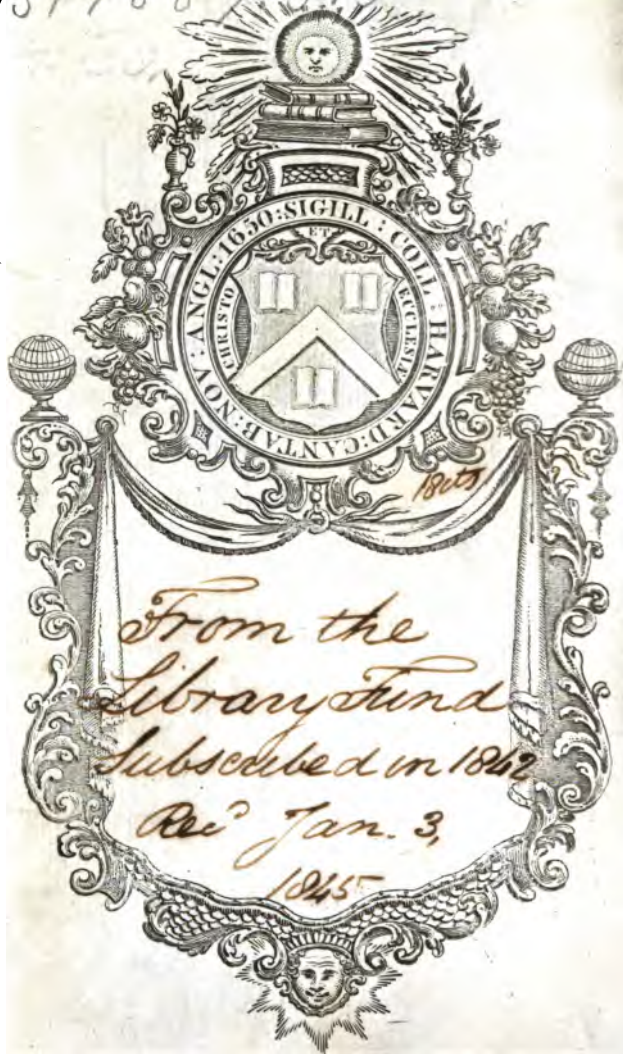 SIGILL : COLL : HARVARD : CANTAB : NOV : ANGL : 1650 :
CHRISTO
ET
ECCLESIÆ
18cts
From the
Library Fund
Subscribed in 1842
Rec^d Jan. 3,
1845